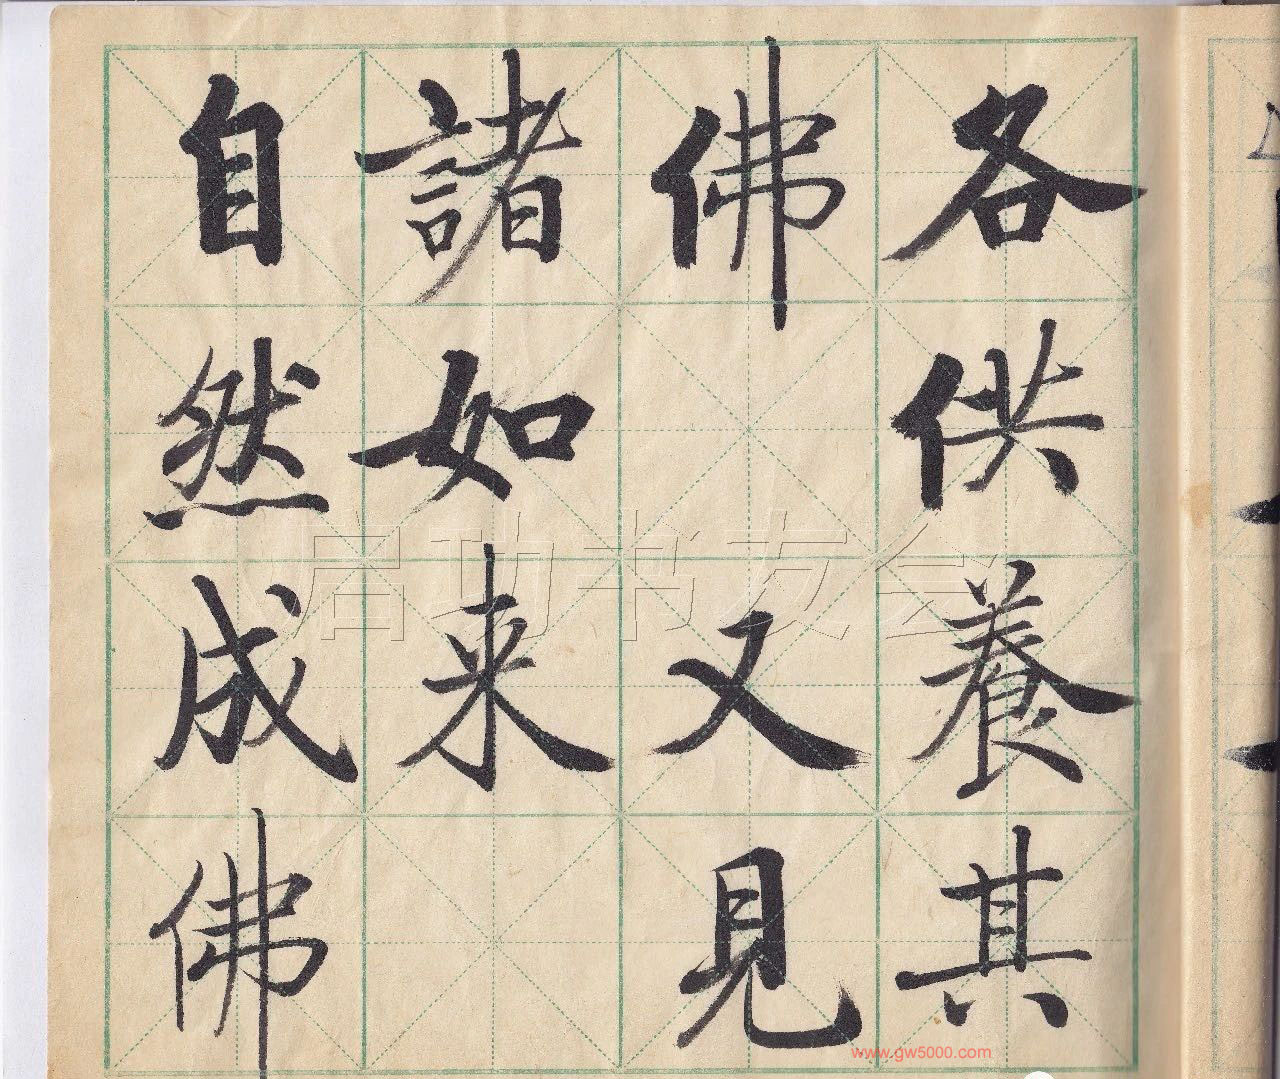 各供養其
佛 又見
諸如来
自然成佛
启功书友会
www.gw5000.com